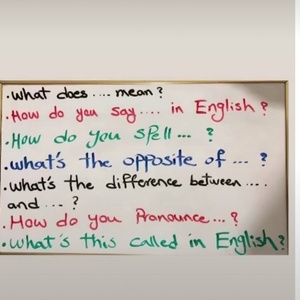 .What does .... mean?
.How do you say .... in English?
.How do you spell... ?
.what's the opposite of ... ?
.what's the difference between ....
and .... ?
.How do you Pronounce...?
.What's this called in English?